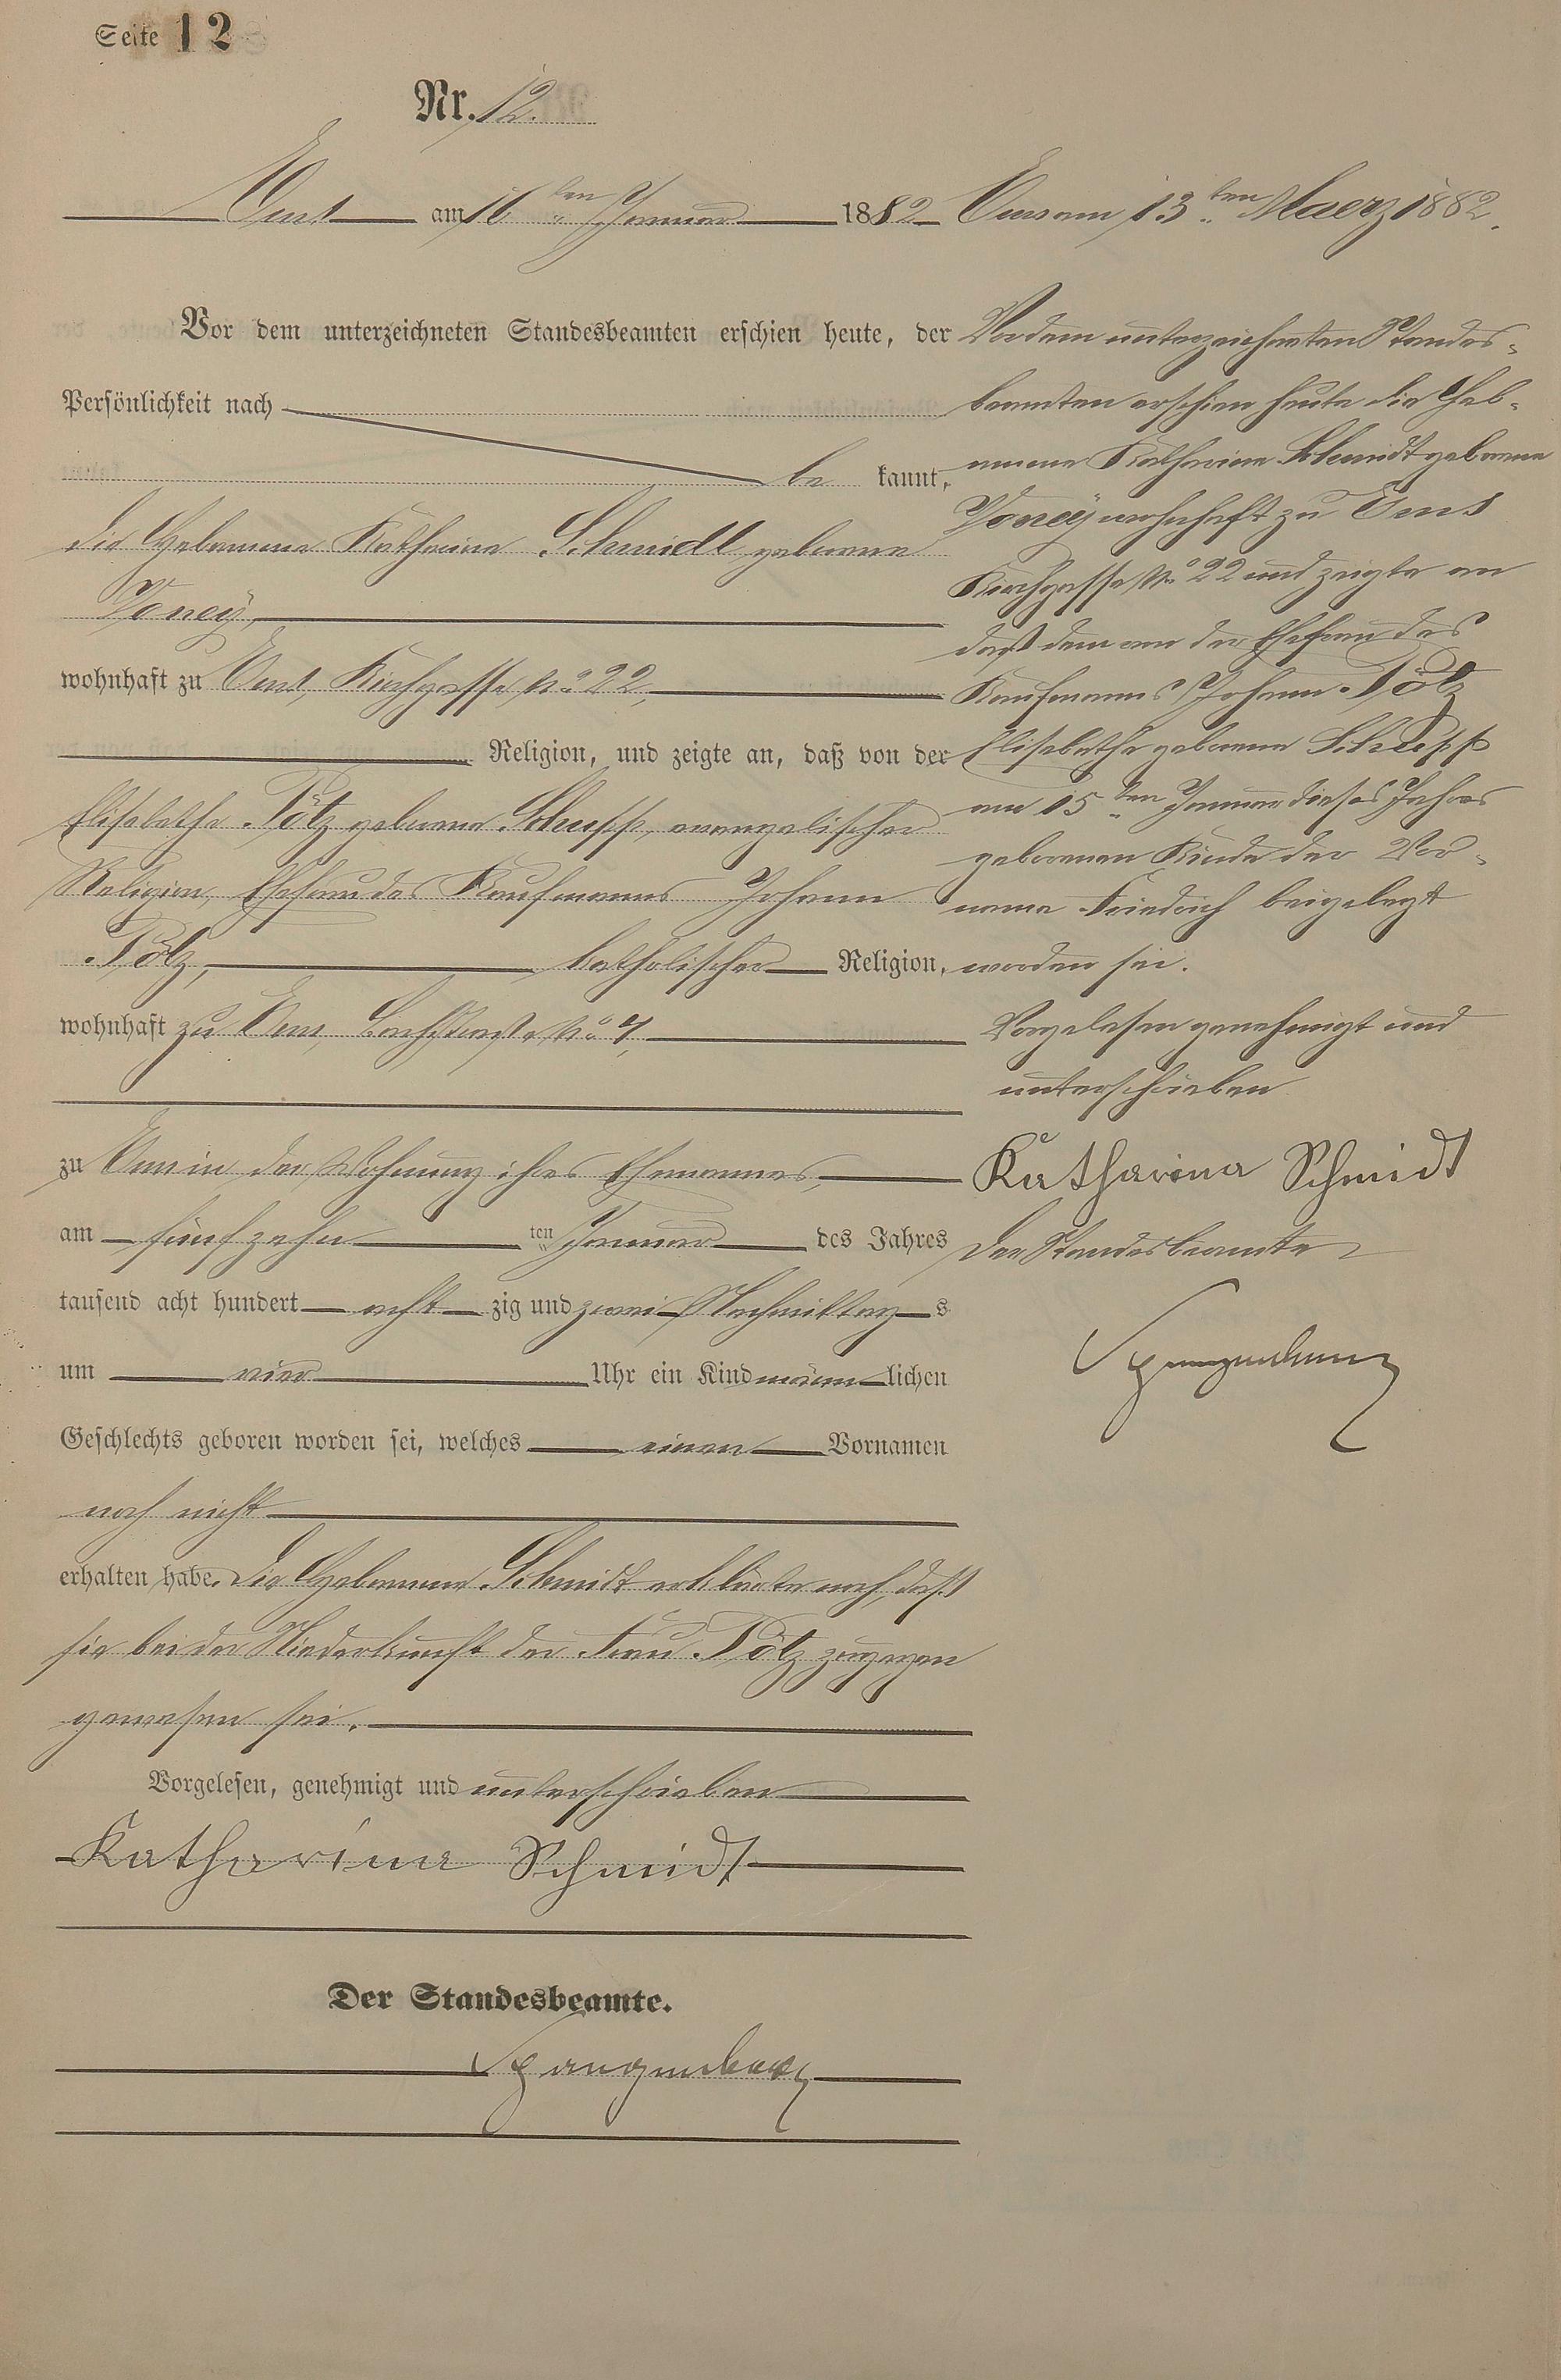 Seite 12
Nr. 12.
Ems am 16ten Januar 1882
Vor dem unterzeichneten Standesbeamten erschien heute, der
Persönlichkeit nach
be kannt,
die Hebamme Katharina Schmidt geborene
Toney,
wohnhaft zu Ems, Kirchgasse No 22,
Religion, und zeigte an, daß von der
Elisabetha Pötz geborene Schupp, evangelischer
Religion, Ehefrau des Kaufmanns Johann
Pötz, katholischer Religion,
wohnhaft zu Ems, No 4,
zu Ems in der Wohnung ihres Ehemannes,
am fünfzehn ten Januar des Jahres
tausend acht hundert acht zig und zwei Nachmittag s
um vier Uhr ein Kind männ lichen
Geschlechts geboren worden sei, welches einen Vornamen
noch nicht
erhalten habe. Die Hebamme Schmidt erklärte noch, daß
sie bei der Niederkunft der Frau Pötz zugegen
gewesen sei.
Vorgelesen, genehmigt und unterschrieben
Katharina Schmidt
Der Standesbeamte.
Spangenberg
Ems am 13ten Maerz 1882.
Vor dem unterzeichneten Standes-
beamten erschien heute die Heb-
amme Katharina Schmidt geborene
Toney wohnhaft zu Ems
Kirchgasse No 22 und zeigte an
daß dem von der Ehefrau des
Kaufmanns Johann Pötz
Elisabetha geborene Schupp
am 15ten Januar dieses Jahres
geborenen Kinde der Vor-
name Friedrich beigelegt
worden sei.
Vorgelesen genehmigt und
unterschrieben
Katharina Schmidt
Der Standesbeamte
Spangenberg